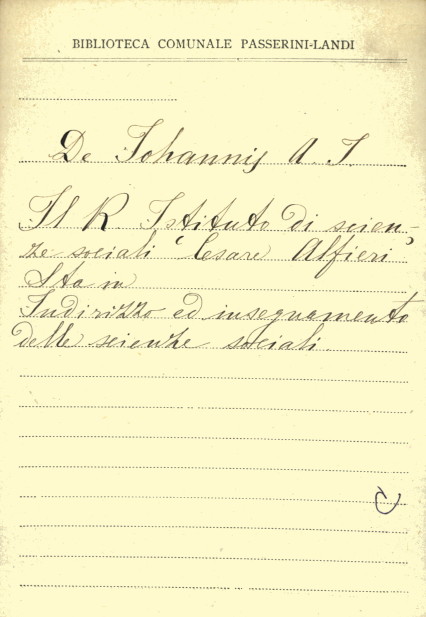 BIBLIOTECA COMUNALE PASSERINI-LANDI
De Johannis A. J.
Il R. Istituto di scien-
ze sociali "Cesare Alfieri
Sta in
Indirizzo ed insegnamento
delle scienze sociali.